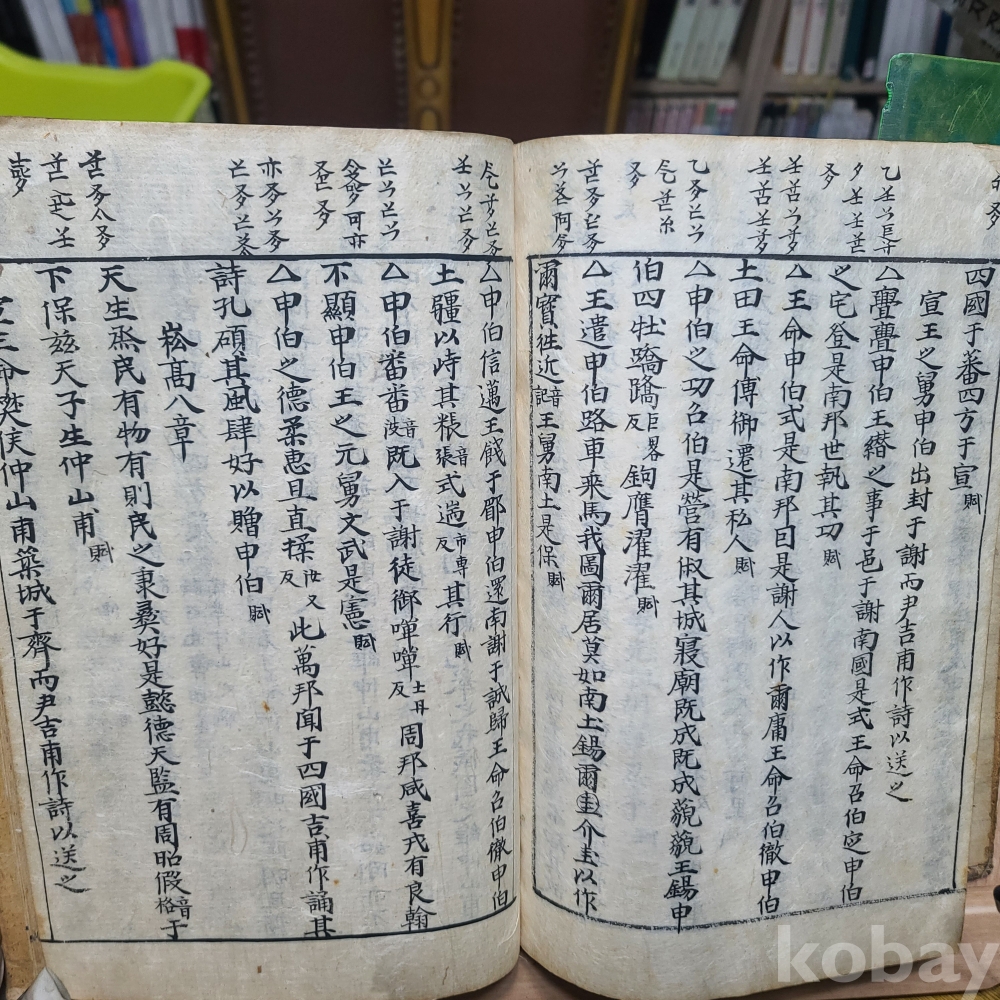 四國于蕃四方于宣賦
宣王之舅申伯出封于謝而尹吉甫作詩以送之
△亹亹申伯王纘之事于邑于謝南國是式王命召伯定申伯
之宅登是南邦世執其功賦
△王命申伯式是南邦曰是謝人以作爾庸王命召伯徹申伯
土田王命傅御遷其私人賦
△申伯之功召伯是營有俶其城寢廟既成既成藐藐王錫申
伯四牡蹻蹻巨畧反鉤膺濯濯賦
△王遣申伯路車乗馬我圖爾居莫如南土錫爾圭介圭以作
爾寳徃近音記王舅南土是保賦
△申伯信邁王餞于郿申伯還南謝于誠歸王命召伯徹申伯
土疆以峙其粻音張式遄市專反其行賦
△申伯番番音波既入于謝徒御嘽嘽土丹反周邦咸喜戎有良翰
不顯申伯王之元舅文武是憲賦
△申伯之德柔惠且直揉汝又反此萬邦聞于四國吉甫作誦其
詩孔碩其風肆好以贈申伯賦
崧高八章
天生烝民有物有則民之秉彝好是懿德天監有周昭假音格于
下保玆天子生仲山甫賦
宣王命樊侯仲山甫築城于齊而尹吉甫作詩以送之
kobay